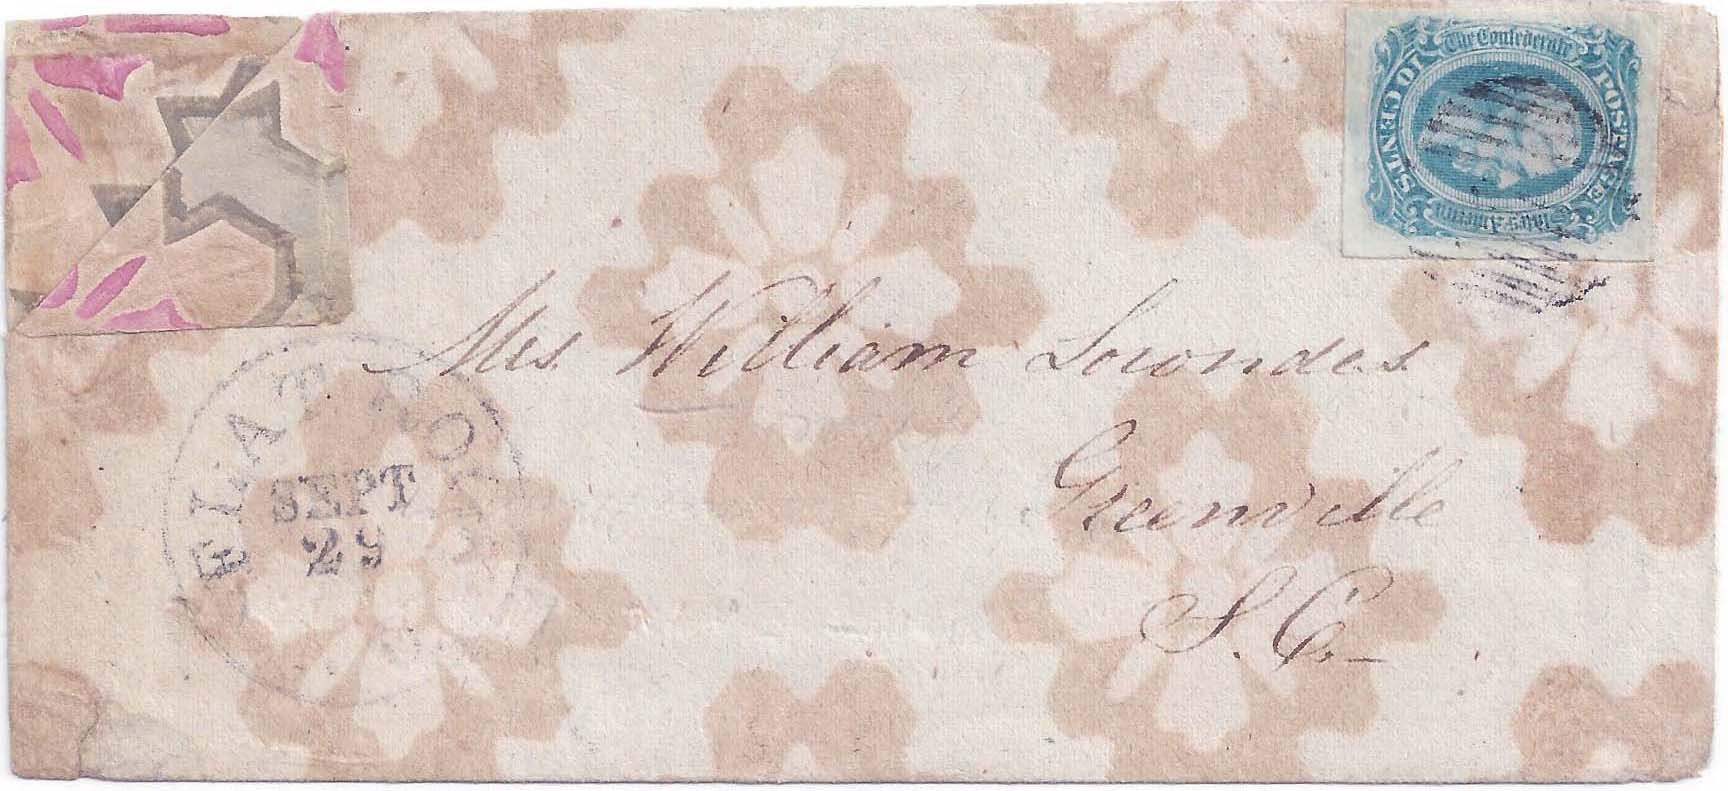 The Confederate
States of America
POSTAGE
10 CENTS
Mrs. William Lowndes
Greenville
S. C.
FLAT ROCK
SEPT
29